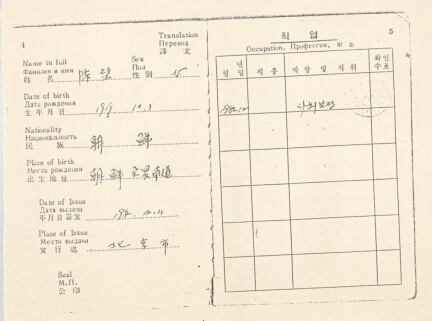 4
Translation
Перевод
譯 文
Name in full
Фамилия и имя
姓 名
Sex
Пол
性 別
女
Date of birth
Дата рождения
生 年 月 日
10.1
Nationality
Национальность
民 族
朝 鮮
Place of birth
Место рождения
出 生 地 址
朝 鮮 全 羅 南 道
Date of Issue
Дата выдачи
年 月 日 簽 发
12.11
Place of Issue
Место выдачи
发 行 處
北 京 市
Seal
М.П.
公 印
5
직 업
Occupation, Профессия,
년
월 일
직 종
직 장 및 직 위
확인
수표
사회보장